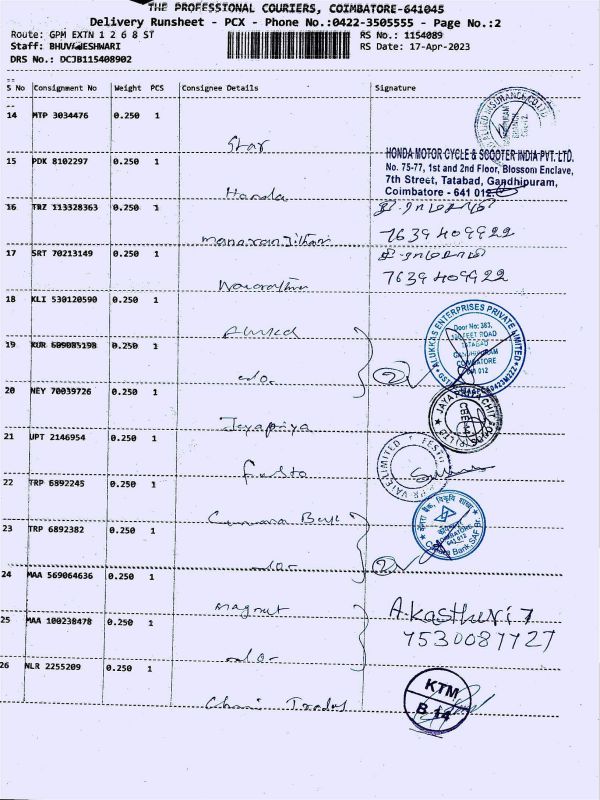 THE PROFESSIONAL COURIERS, COIMBATORE-641045
Delivery Runsheet - PCX - Phone No.:0422-3505555 - Page No.:2
Route: GPM EXTN 1 2 6 8 ST
RS No.: 1154089
Staff: BHUVANESHWARI
RS Date: 17-Apr-2023
DRS No.: DCJB115408902
S No Consignment No Weight PCS Consignee Details Signature
14 MTP 3034476 0.250 1
Star
15 PDK 8102297 0.250 1
HONDA MOTOR CYCLE & SCOOTER INDIA PVT. LTD.
No. 75-77, 1st and 2nd Floor, Blossom Enclave,
7th Street, Tatabad, Gandhipuram,
Coimbatore - 641 012
Honda
16 TRZ 113328363 0.250 1
7639409922
17 SRT 70213149 0.250 1
7639409922
18 KLI 530120590 0.250 1
ALUKKAS ENTERPRISES PRIVATE LIMITED
Door No: 383,
100 FEET ROAD
TATABAD
GANDHIPURAM
COIMBATORE
641 012
19 KUR 609085198 0.250 1
2
20 NEY 70039726 0.250 1
Jayapriya
21 UPT 2146954 0.250 1
Festo
22 TRP 6892245 0.250 1
Canara Bank
23 TRP 6892382 0.250 1
2
24 MAA 569064636 0.250 1
Magnut
A.Kasthuri
7530087727
25 MAA 100238478 0.250 1
26 NLR 2255209 0.250 1
KTM
B 14